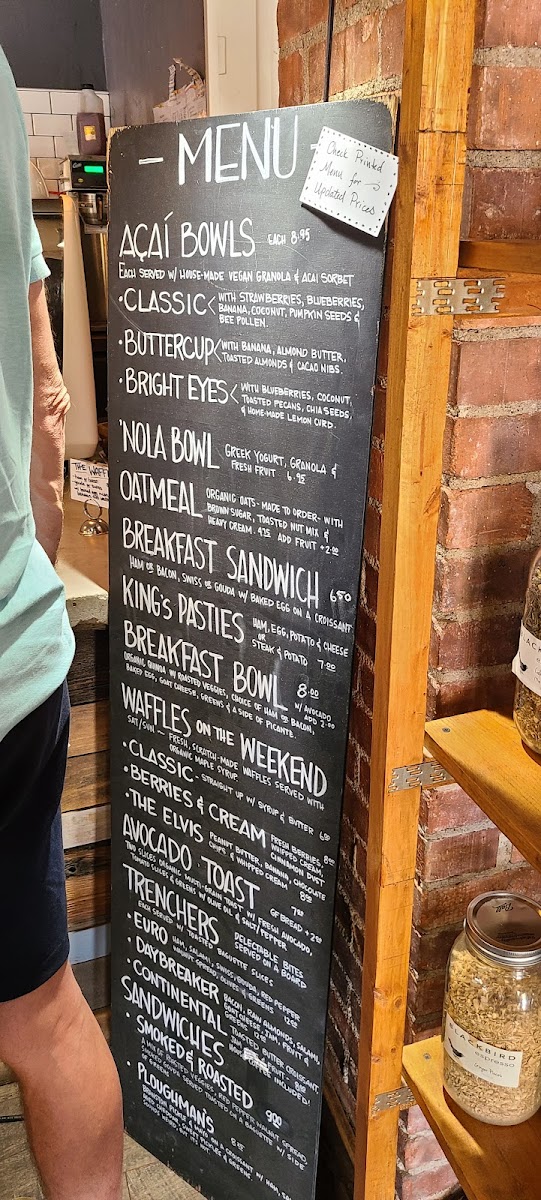 - MENU -
Check Printed
Menu for →
Updated Prices
AÇAÍ BOWLS EACH 8.95
EACH SERVED W/ HOUSE-MADE VEGAN GRANOLA & ACAI SORBET
• CLASSIC < WITH STRAWBERRIES, BLUEBERRIES,
BANANA, COCONUT, PUMPKIN SEEDS &
BEE POLLEN.
• BUTTERCUP < WITH BANANA, ALMOND BUTTER,
TOASTED ALMONDS & CACAO NIBS.
• BRIGHT EYES < WITH BLUEBERRIES, COCONUT,
TOASTED PECANS, CHIA SEEDS,
& HOME-MADE LEMON CURD.
'NOLA BOWL GREEK YOGURT, GRANOLA &
FRESH FRUIT 6.95
OATMEAL ORGANIC OATS - MADE TO ORDER - WITH
BROWN SUGAR, TOASTED NUT MIX &
HEAVY CREAM. 4.75 ADD FRUIT +2.00
BREAKFAST SANDWICH 6.50
HAM OR BACON, SWISS OR GOUDA W/ BAKED EGG ON A CROISSANT
KING'S PASTIES HAM, EGG, POTATO & CHEESE
OR
STEAK & POTATO 7.00
BREAKFAST BOWL 8.00
W/ AVOCADO
ADD 2.00
ORGANIC QUINOA W/ ROASTED VEGGIES, CHOICE OF HAM OR BACON,
BAKED EGG, GOAT CHEESE, GREENS & A SIDE OF PICANTE.
WAFFLES ON THE WEEKEND
SAT/SUN - FRESH, SCRATCH-MADE WAFFLES SERVED WITH
ORGANIC MAPLE SYRUP.
• CLASSIC - STRAIGHT UP W/ SYRUP & BUTTER
• BERRIES & CREAM FRESH BERRIES,
WHIPPED CREAM,
CINNAMON DUST
• THE ELVIS PEANUT BUTTER, BANANA, CHOCOLATE
CHIPS & WHIPPED CREAM
AVOCADO TOAST
GF BREAD
TWO SLICES ORGANIC MULTI-GRAIN TOAST W/ FRESH AVOCADO,
TOMATO SLICES & GREENS W/ OLIVE OIL & SALT/PEPPER
TRENCHERS DELECTABLE BITES
SERVED ON A BOARD
EACH SERVED W/ TOASTED BAGUETTE SLICES
• EURO HAM, SALAMI, SWISS, GOUDA, RED PEPPER
WALNUT SPREAD, OLIVES & GREENS
• DAYBREAKER BACON, RAW ALMONDS, SALAMI,
GOAT CHEESE, JAM, FRUIT &
GREENS
• CONTINENTAL TOASTED BUTTER CROISSANT,
SANDWICHES
INCLUDED!
• SMOKED & ROASTED
• PLOUGHMAN'S
THE WAFF
BLACKBIRD
espresso
Ball